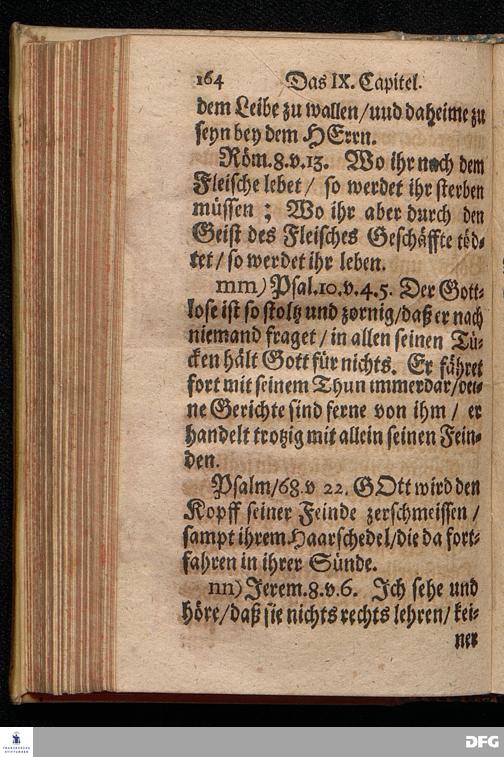 164 Das IX. Capitel.
dem Leibe zu wallen/uud daheime zu
seyn bey dem HErrn.
Röm.8.v.13. Wo ihr nach dem
Fleische lebet/ so werdet ihr sterben
müssen; Wo ihr aber durch den
Geist des Fleisches Geschäffte töd-
tet/so werdet ihr leben.
mm) Psal.10.v.4.5. Der Gott-
lose ist so stoltz und zornig/daß er nach
niemand fraget/in allen seinen Tü-
cken hält Gott für nichts. Er fähret
fort mit seinem Thun immerdar/dei-
ne Gerichte sind ferne von ihm/ er
handelt trotzig mit allein seinen Fein-
den.
Psalm/68.v 22. GOtt wird den
Kopff seiner Feinde zerschmeissen/
sampt ihrem Haarschedel/die da fort-
fahren in ihrer Sünde.
nn) Jerem.8.v.6. Ich sehe und
höre/daß sie nichts rechts lehren/kei-
ner
FRANCKESCHE
STIFTUNGEN
DFG